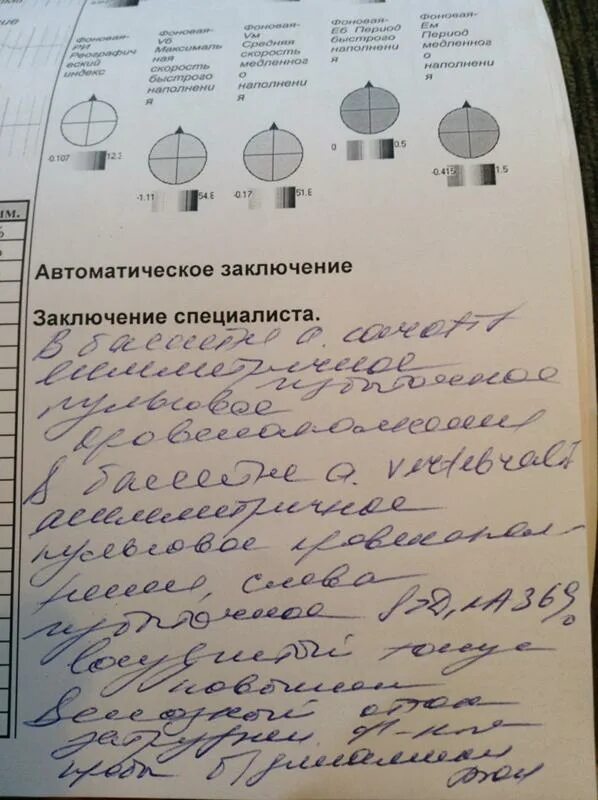 Фоновая-
РИ
Реографич
еский
индекс
Фоновая-
Vб
Максималь
ная
скорость
быстрого
наполнени
я
Фоновая-
Vм
Средняя
скорость
медленног
о
наполнени
я
Фоновая-
Еб Период
быстрого
наполнени
я
Фоновая-
Ем
Период
медленног
о
наполнени
я
-0.107 12.3
-1.11 54.6
-0.17 51.6
0 0.5
-0.415 1.5
Автоматическое заключение
Заключение специалиста.
В бассейне a. carotis
симметричное
избыточное
пульсовое
кровенаполнение
В бассейне a.
асимметричное
пульсовое кровенапол-
нение, слева
избыточное S>D, КА 36%
Сосудистый тонус
повышен
Венозный отток
затруднен
пробы б/динамики